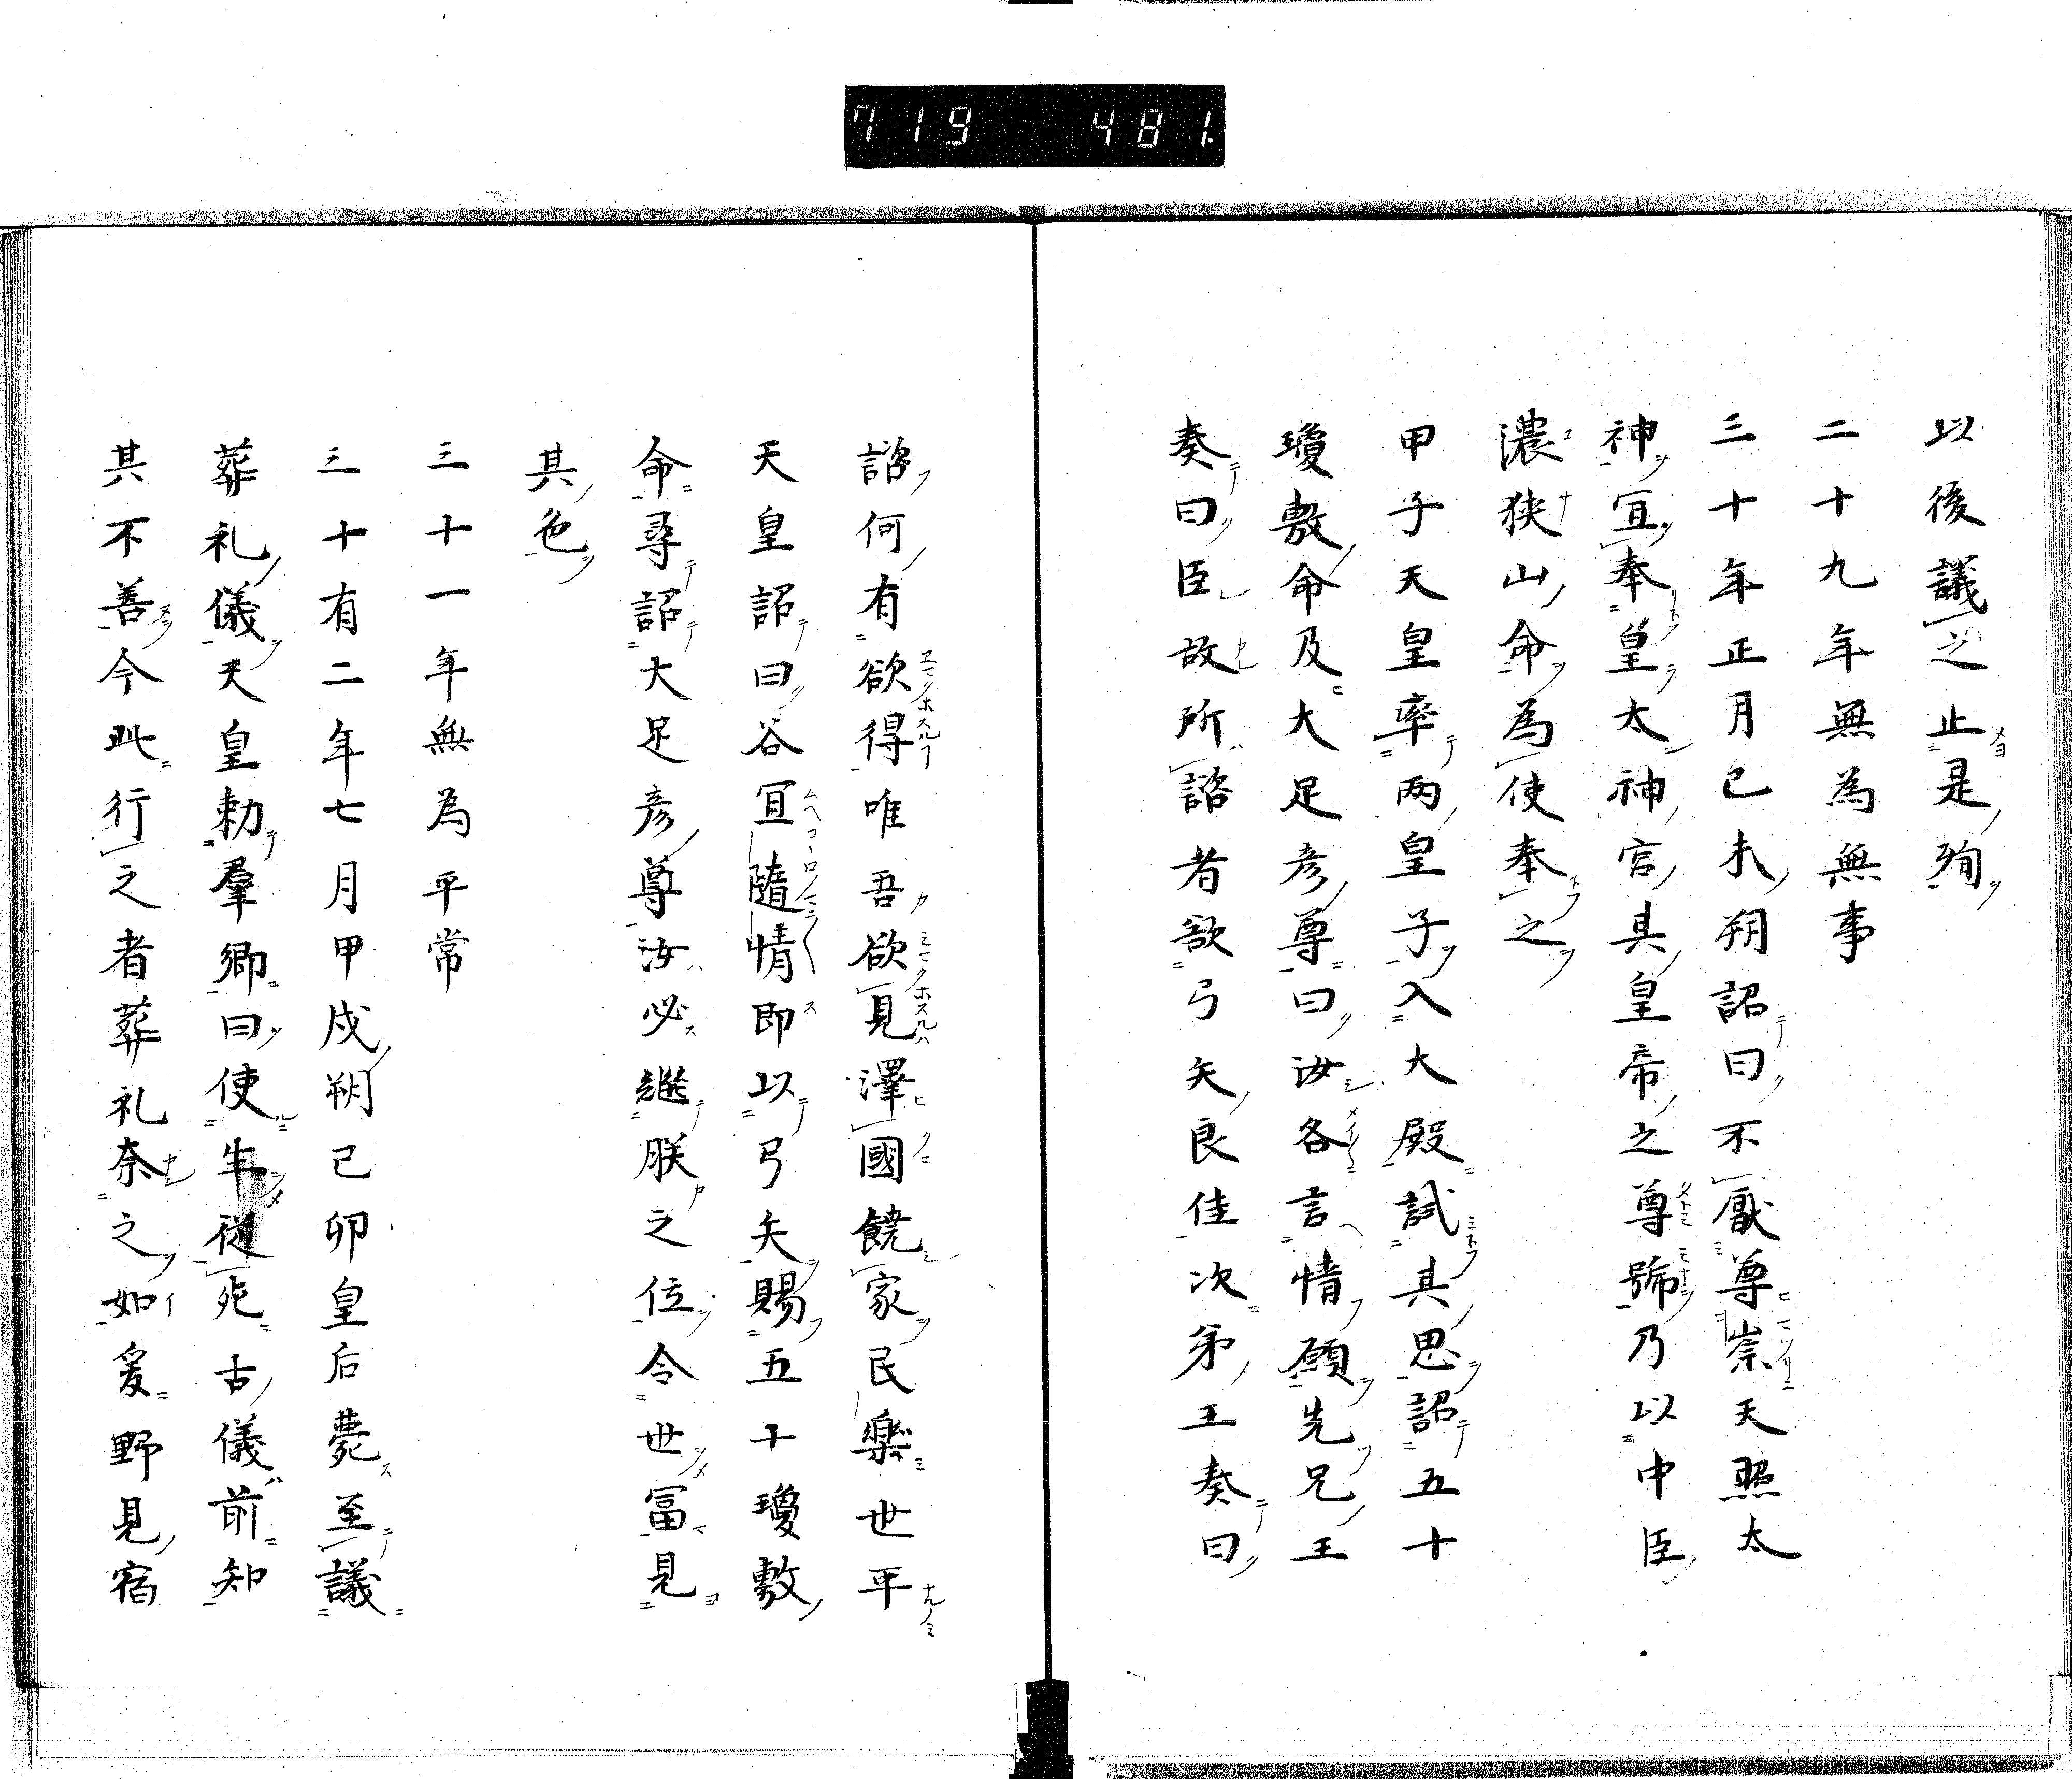 719 481.
以後議之止是殉
二十九年無為無事
三十年正月己未朔詔曰不厭尊崇天照太
神宜奉皇太神宮其皇帝之尊號乃以中臣
濃狭山命為使奉之
甲子天皇率兩皇子入大殿試其思詔五十
瓊敷命及大足彦尊曰汝各言情願先兄王
奏曰臣故所諮者欲弓矢良佳次弟王奏曰
諮何有欲得唯吾欲見澤國饒家民樂世平
天皇詔曰谷宜隨情即以弓矢賜五十瓊敷
命尋詔大足彦尊汝必繼朕之位令世冨見
其色
三十一年無為平常
三十有二年七月甲戌朔己卯皇后薨至議
葬礼儀天皇勅羣卿曰使生従死古儀前知
其不善今此行之者葬礼奈之如爰野見宿